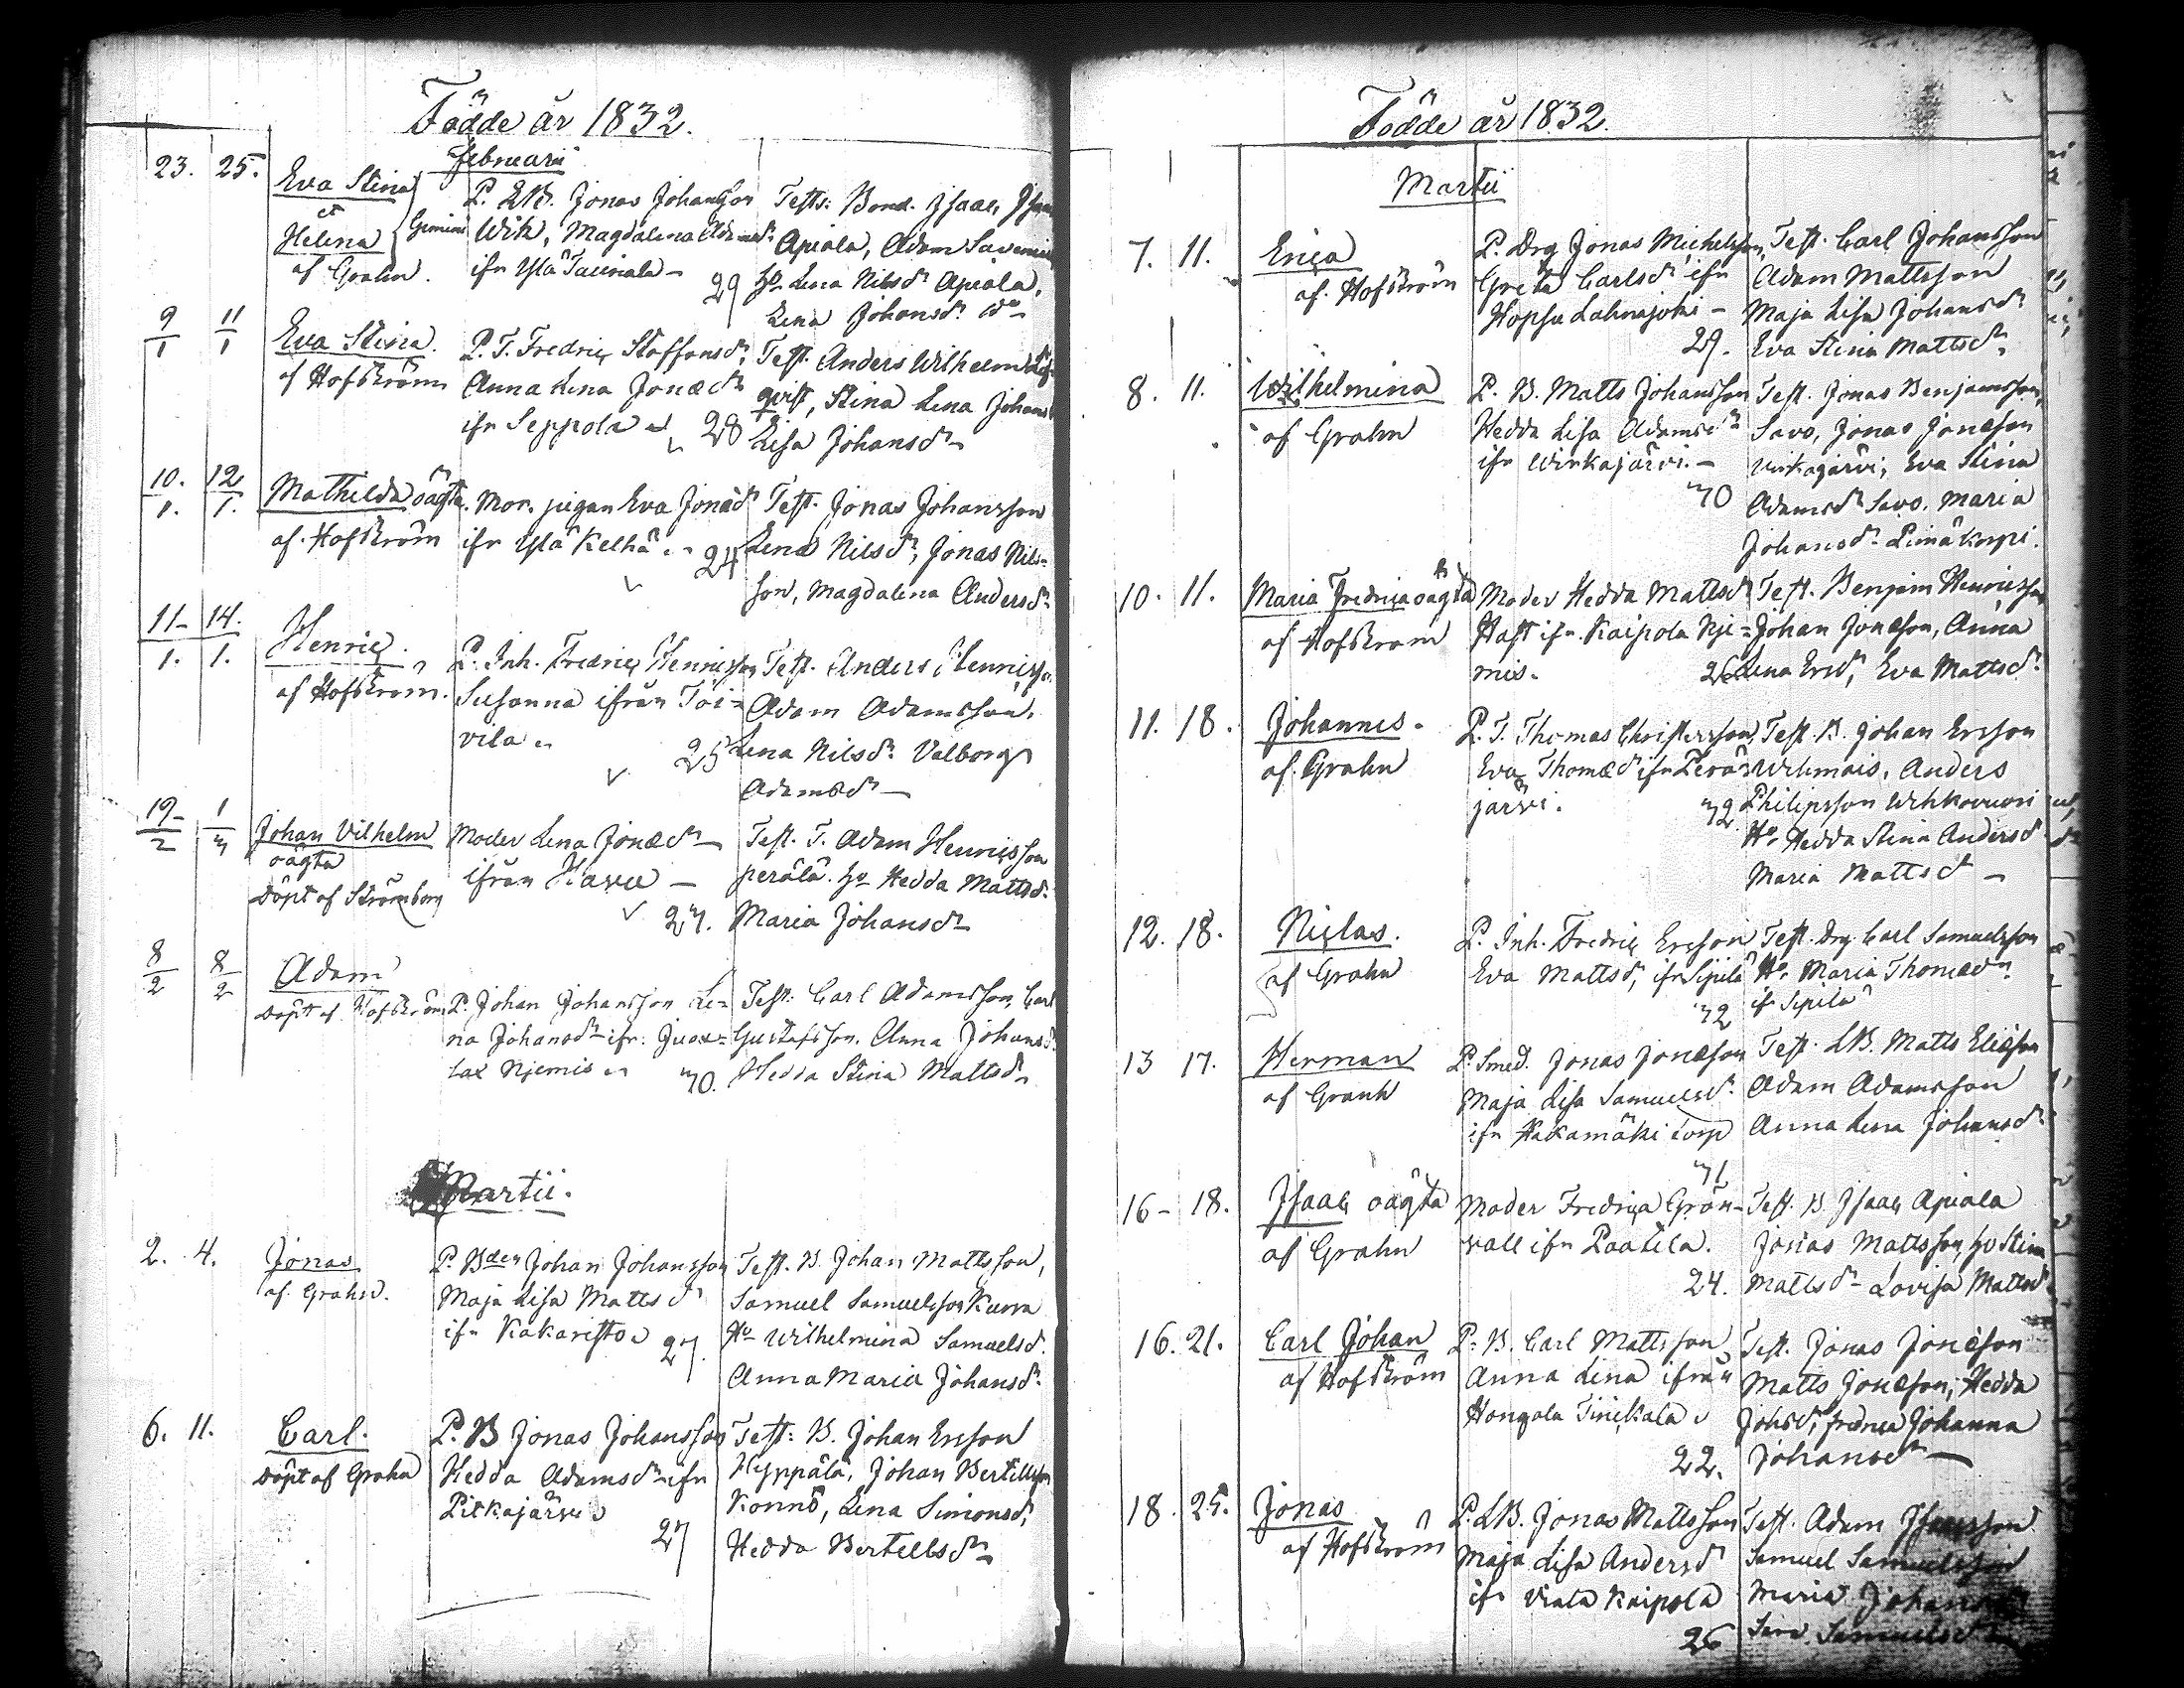 Födde år 1832.
Februarii
23. 25. Eva Stina et Helena Gemini af Grahn.
P. LB. Jonas Johansson
Wik, Magdalena Adamsdr
ifn Ylä
29
Testes: Bond. Isaac
Apiala, Adam
Ho. Lena Nilsdr Apiala,
Lena Johansdr do
9/1 11/1 Eva Stina.
af Hofström
P. T. Fredric Staffansdr,
Anna Lena Jonædr
ifn Seppola
28
Test. Anders Wilhelm
qvist, Stina Lena Johansd
Lisa Johansdr
10./1. 12/1. Mathilda oägta.
af Hofström
Mor. pigan Eva Jonædr
ifn Ylä Kelhä
24
Test. Jonas Johansson
Lena Nilsdr, Jonas Nils-
son, Magdalena Andersdr
11-/1. 14./1. Henric.
af Hofström.
P. Inh. Fredric Henricsson
Susanna ifrån Toi-
vila
25
Test. Anders Henricsson
Adam Adamsson,
Lena Nilsdr Valborg
Adamsdr
19-/2 1/3 Johan Vilhelm
oägta
döpt af Strömborg
Moder Lena Jonædr
ifrån Havu
27.
Test. T. Adam Henricsson
perälä. Ho Hedda Mattsdr
Maria Johansdr
8/2 8/2 Adam
döpt af Hofström
P. Johan Johansson Le-
na Johansdr ifr. Juox-
lax Njemis
30.
Test: Carl Adamsson, Carl
Gustafsson. Anna Johansdr
Hedda Stina Mattsdr
Martii.
2. 4. Jonas
af Grahn.
P. Bden Johan Johansson
Maja Lisa Mattsdr
ifn Kakaristo
27.
Test. B. Johan Mattsson,
Samuel Samuelsson Kurra
Ho Wilhelmina Samuelsd.
Anna Maria Johansdr
6. 11. Carl.
döpt af Grahn
P. B Jonas Johansson
Hedda Adamsdr ifn
Pitkajärvi
27
Test: B. Johan Ersson
Hyppälä, Johan Bertillsson
Konnö, Lena Simonsd,
Hedda Bertellsdr
Födde år 1832.
Martii
7. 11. Erica
af Hofström
P. Drg Jonas Michelsson,
Greta Carlsdr ifn
Hopsu Lahnajoki
29.
Test. Carl Johansson
Adam Mattsson
Maja Lisa Johansdr
Eva Stina Mattsdr
8. 11. Wilhelmina
af Grahn
P. B. Matts Johansson
Hedda Lisa Adamsdr
ifn Winkajärvi.
30
Test. Jonas Benjamsson,
Savo, Jonas Jonæson
Vinkajärvi, Eva Stina
Adamsdr Savo. Maria
Johansdr Limäkorpi.
10. 11. Maria Fredrica oägta
af Hofström
Moder Hedda Mattsdr
Haft ifn Kaipola Nje-
mis.
26
Test. Benjam Henricsson
Johan Jonæson, Anna
Lena Ersd, Eva Mattsdr
11. 18. Johannes.
af Grahn
P. T. Thomas Christersson,
Eva Thomædr ifn Perä-
järvi.
32
Test. B. Johan Ersson
Wihmais, Anders
Philipsson Wihkovuori
Ho Hedda Stina Andersdr
Maria Mattsdr
12. 18. Niclas.
af Grahn
P. Inh. Fredric Ersson
Eva Mattsdr, ifn Sipilä
32
Test. Drg. Carl Samuelsson
Ho Maria Thomædr
ifn Sipilä
13 17. Herman
af Granh
P. Smed. Jonas Jonæson
Maja Lisa Samuelsdr
ifn Hakamäki torp
31
Test. LB. Matts Eliæson
Adam Adamsson
Anna Lena Johansdr
16- 18. Isaac oägta
af Grahn
Moder Fredrica Grön-
vall ifn Paatela.
24.
Test. B Isaac Apiala
Jonas Mattsson, Ho Stina
Mattsdr Lovisa Mattsd
16. 21. Carl Johan
af Hofström
P. B. Carl Mattsson
Anna Lina ifrån
Hongola
22.
Test. Jonas Jonæson
Matts Jonæson, Hedda
Johsdr, Johanna
Johansdr
18. 25. Jonas
af Hofström
P. LB. Jonas Mattsson
Maja Lisa Andersdr
ifn Viala Kaipola
26
Test. Adam Isaacsson
Samuel Samuelsson
Maria Johansdr
Samuelsdr